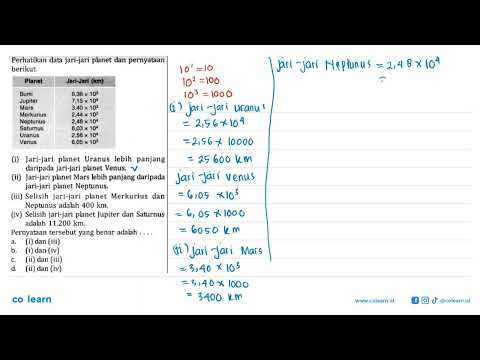 Perhatikan data jari-jari planet dan pernyataan
berikut.
Planet Jari-Jari (km)
Bumi 6,38 × 10³
Jupiter 7,15 × 10⁴
Mars 3,40 × 10³
Merkurius 2,44 × 10³
Neptunus 2,48 × 10⁴
Saturnus 6,03 × 10⁴
Uranus 2,56 × 10⁴
Venus 6,05 × 10³
(i) Jari-jari planet Uranus lebih panjang
daripada jari-jari planet Venus. ✓
(ii) Jari-jari planet Mars lebih panjang daripada
jari-jari planet Neptunus.
(iii) Selisih jari-jari planet Merkurius dan
Neptunus adalah 400 km.
(iv) Selisih jari-jari planet Jupiter dan Saturnus
adalah 11.200 km.
Pernyataan tersebut yang benar adalah . . . .
a. (i) dan (iii)
b. (i) dan (iv)
c. (ii) dan (iii)
d. (ii) dan (iv)
10¹ = 10
10² = 100
10³ = 1000
(i) jari-jari uranus
= 2,56 × 10⁴
= 2,56 × 10000
= 25600 km
jari-jari venus
= 6,05 × 10³
= 6,05 × 1000
= 6050 km
(ii) jari-jari Mars
= 3,40 × 10³
= 3,40 × 1000
= 3400 km
jari-jari Neptunus = 2,48 × 10⁴
=
co learn
www.colearn.id
@colearn.id